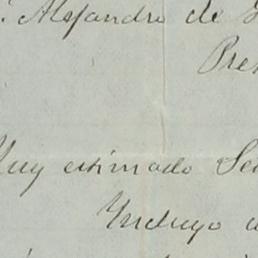 Alejandro de
Pre
Muy estimado Se
Incluyo